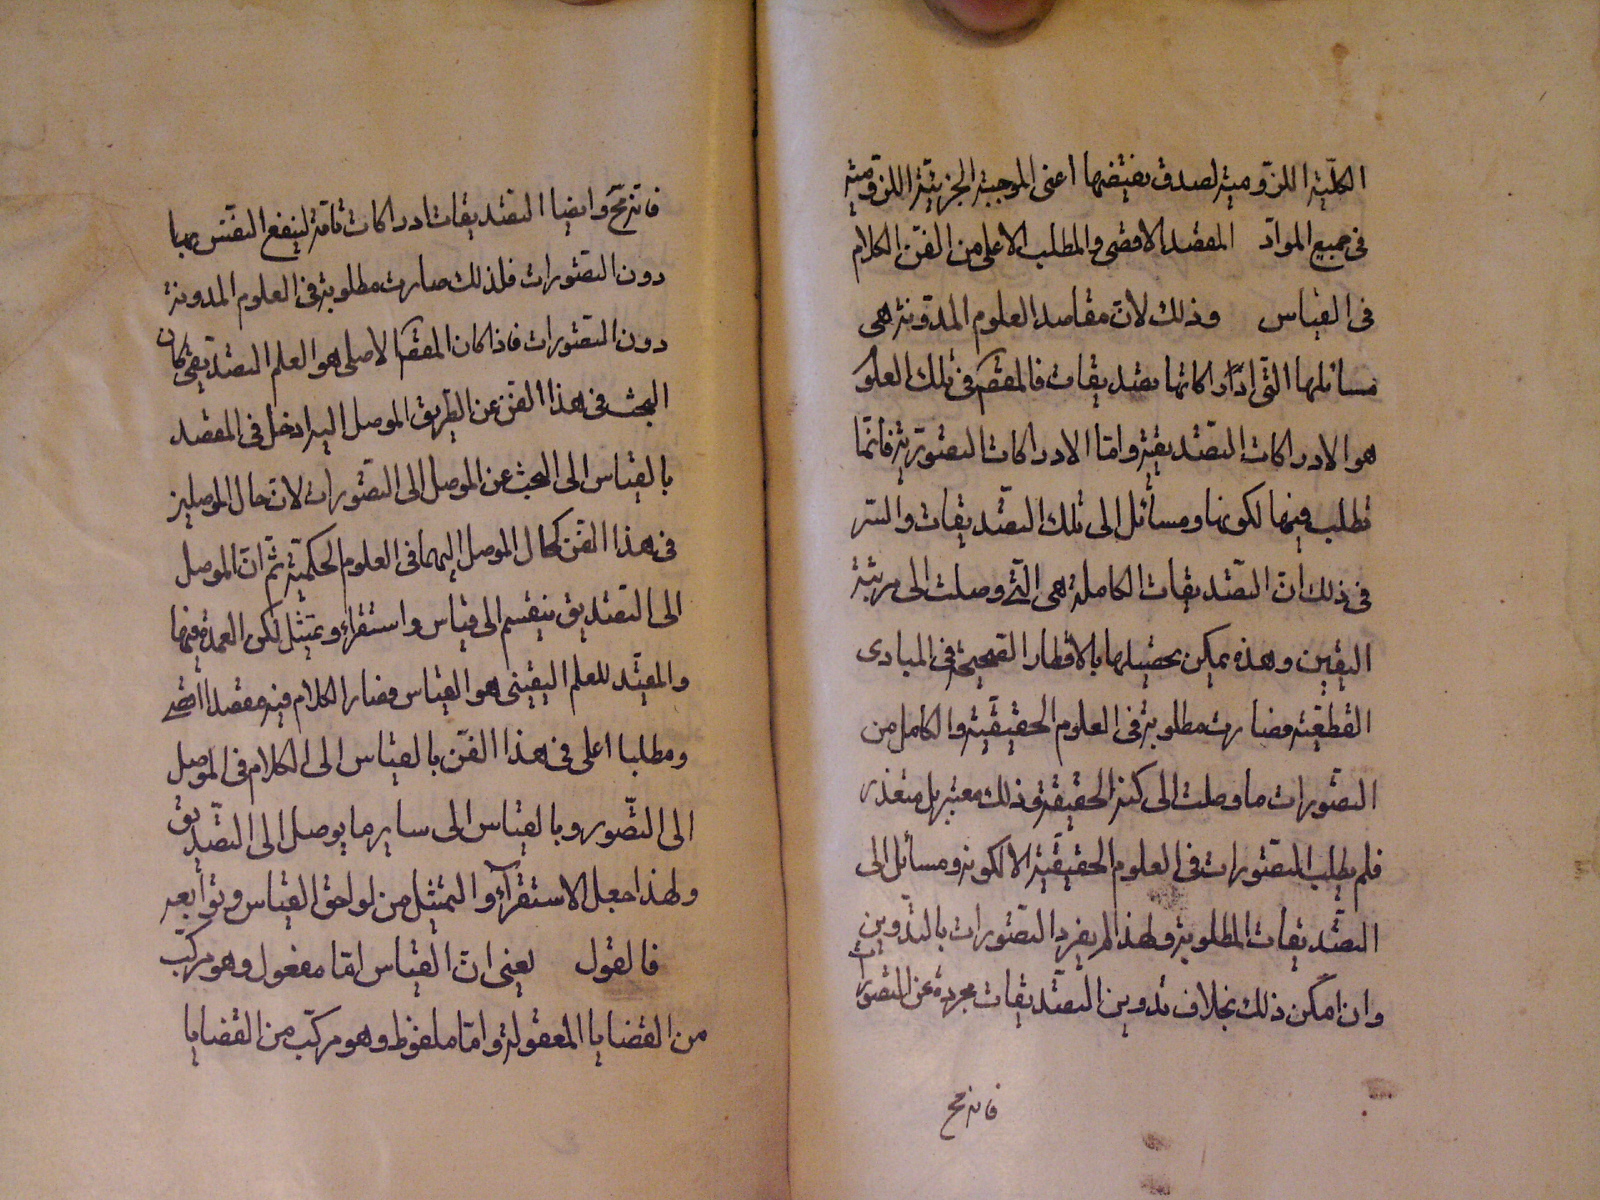 الكلّيّة اللزوميّة لصدق نقيضها اعنى الموجبة الجزئيّة اللزوميّة
فى جميع الموادّ المقصد الاقصى والمطلب الاعلى من الفنّ الكلام
فى القياس وذلك لانّ مقاصد العلوم المدوّنة هى
مسائلها التى ادراكاتها تصديقات فالمقصم فى تلك العلو
هو الادراكات التصديقيّة وامّا الادراكات التصوّريّة فانّما
تطلب فيها لكونها وسائل الى تلك التصديقات والسّر
فى ذلك انّ التصديقات الكاملة هى الّتى وصلت الى مرتبة
اليقين وهذه يمكن تحصيلها بالانظار الصحيحة فى المبادى
القطعيّة فصارت مطلوبة فى العلوم الحقيقيّة والكامل من
التصوّرات ما وصلت الى كنه الحقيقة وذلك متعذر
فلم يطلب التصوّرات فى العلوم الحقيقيّة الا لكونه وسائل الى
التصديقات المطلوبة ولهذا لم يفرد التصوّرات بالتدّوين
وان امكن ذلك بخلاف تدوين التصديقات مجردة عن التصورات
فانه مح
فانه مح وايضا التصديقات ادراكات تامّة لينفع النفس بها
دون التصوّرات فلذلك صارت مطلوبة فى العلوم المدونة
دون التصوّرات فاذا كان المقصم الاصلى هو العلم التصديقى كان
البحث فى هذا الفنّ عن الطريق الموصل اليه ادخل فى المقصد
بالقياس الى البحث عن الموصل الى التصوّرات لانّ حال الموصلين
فى هذا الفنّ كحال الموصل اليهما فى العلوم الحكميّة ثمّ انّ الموصل
الى التصديق ينقسم الى قياس واستقراء وتمثيل لكن العمدة فيها
والمفيد للعلم اليقينى هو القياس فصار الكلام فيه مقصدا اقصى
ومطلبا اعلى فى هذا الفنّ بالقياس الى الكلام فى الموصل
الى التصّور وبالقياس الى ساير ما يوصل الى التصديق
ولهذا جعل الاستقرآء والتمثيل من لواحق القياس وتوابعه
فالقول يعنى انّ القياس امّا معقول وهو مركّب
من القضايا المعقولة وامّا ملفوظ وهو مركّب من القضايا